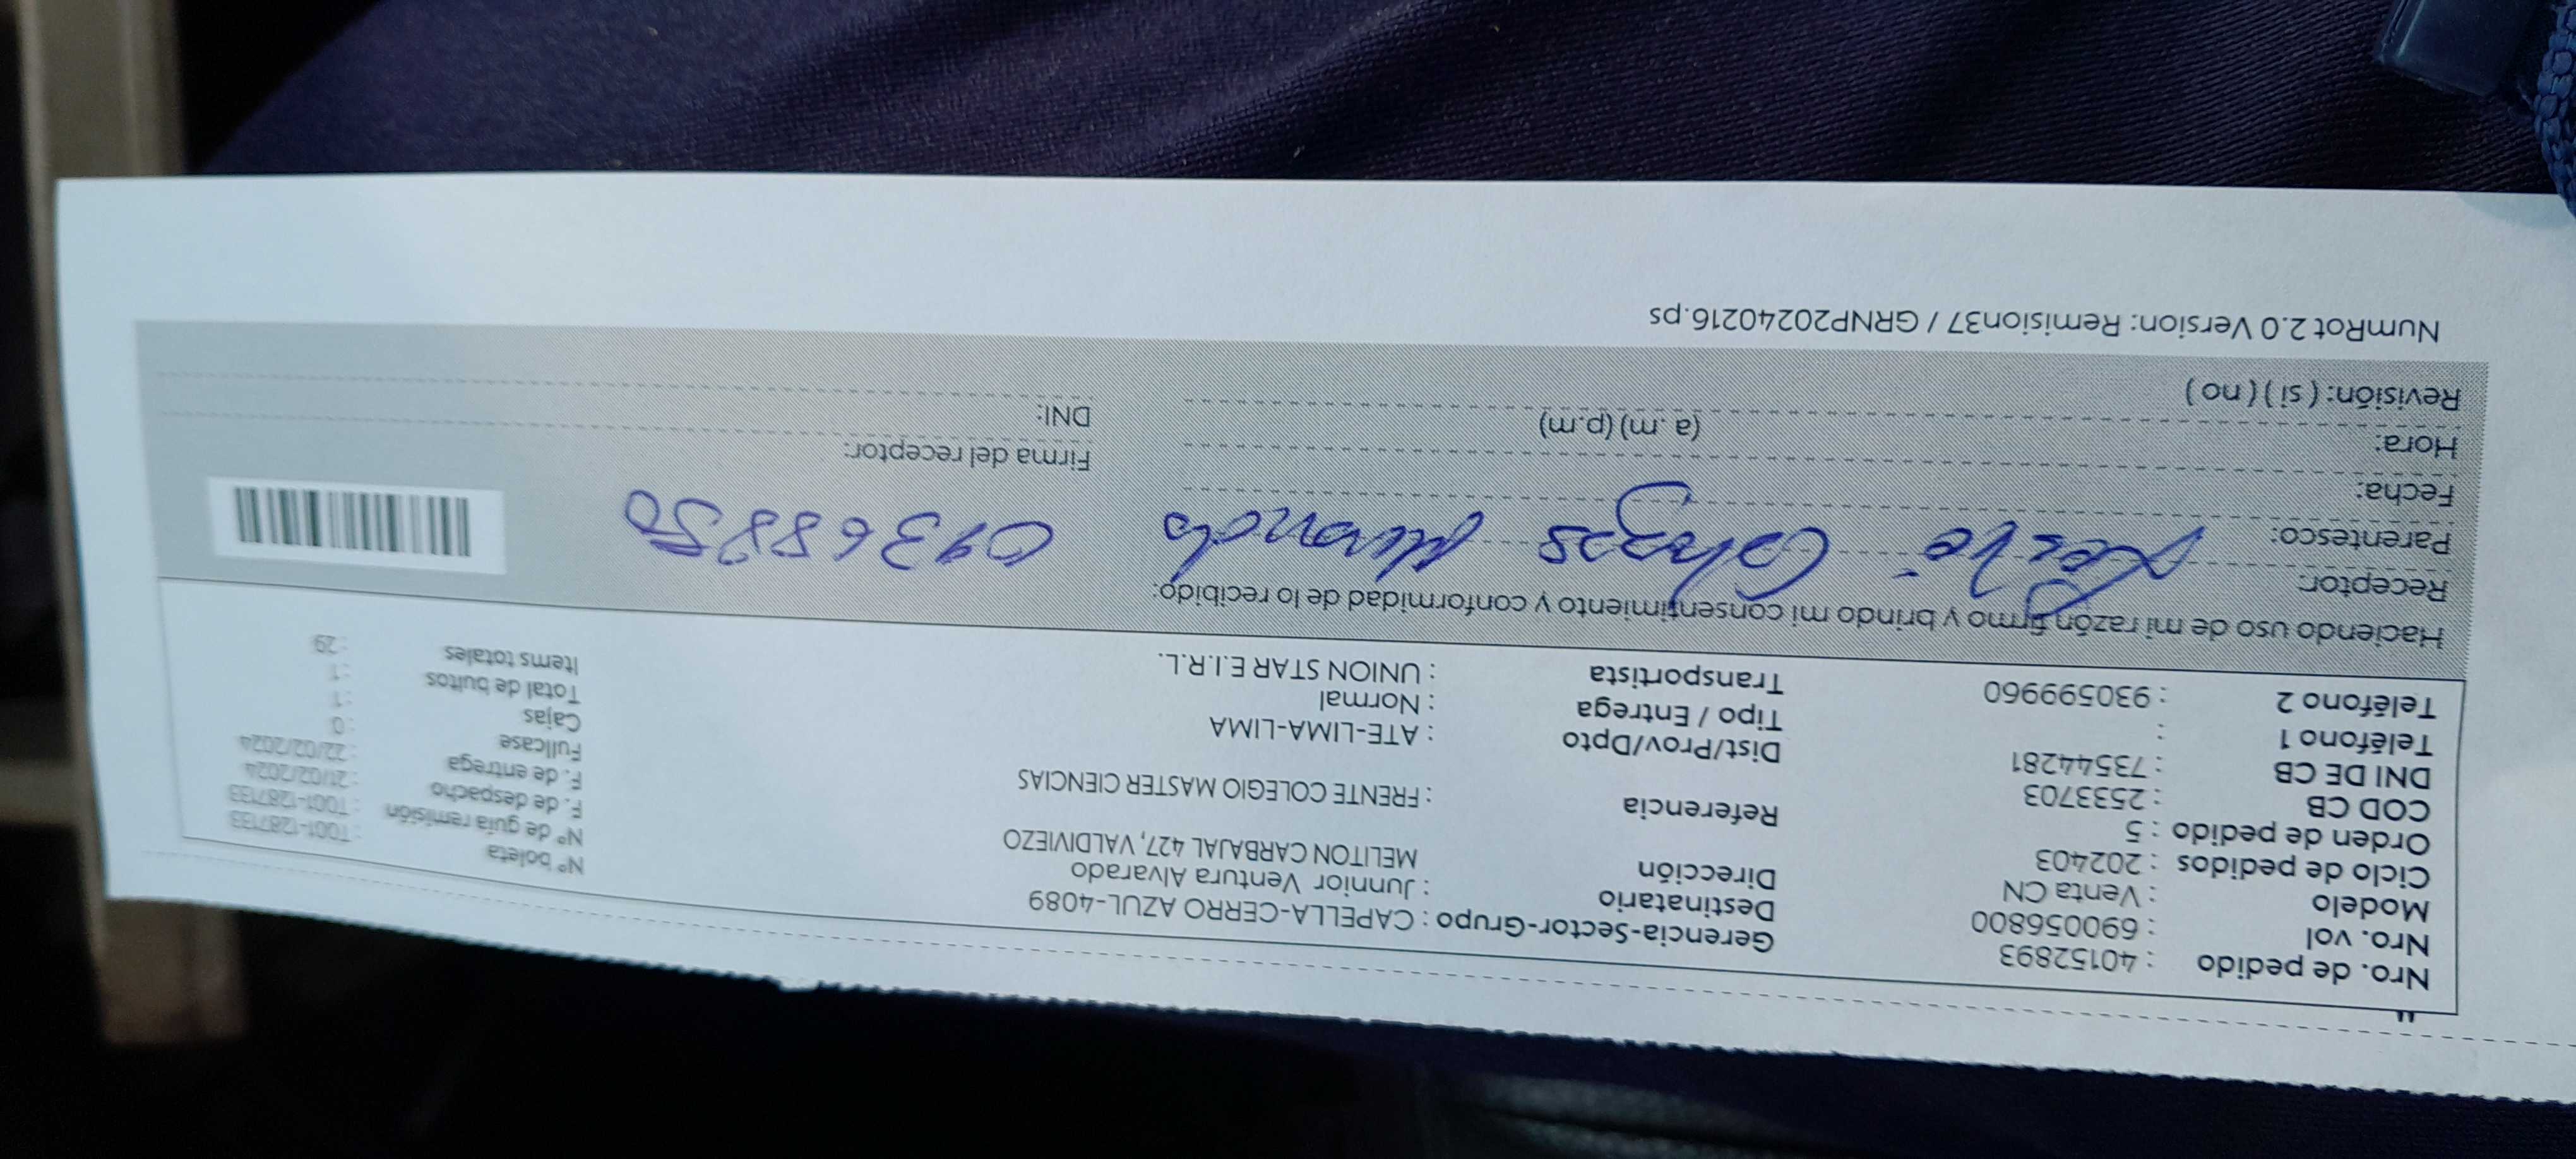 Nro. de pedido : 40152893
Nro. vol : 690056800
Modelo : Venta CN
Ciclo de pedidos : 202403
Orden de pedido : 5
COD CB : 2533703
DNI DE CB : 73544281
Teléfono 1 :
Teléfono 2 : 930599960
Gerencia-Sector-Grupo : CAPELLA-CERRO AZUL-4089
Destinatario : Junnior Ventura Alvarado
Dirección MELITON CARBAJAL 427, VALDIVIEZO
Referencia : FRENTE COLEGIO MASTER CIENCIAS
Dist/Prov/Dpto : ATE-LIMA-LIMA
Tipo / Entrega : Normal
Transportista : UNION STAR E.I.R.L.
Nº boleta : T001-1287133
Nº de guía remisión : T001-1287133
F. de despacho : 21/02/2024
F. de entrega : 22/02/2024
Fullcase : 0
Cajas : 1
Total de bultos : 1
Items totales : 29
Haciendo uso de mi razón firmo y brindo mi consentimiento y conformidad de lo recibido:
Receptor:
Parentesco:
Fecha:
Hora: (a. m) (p.m)
Revisión: ( si ) ( no )
Firma del receptor:
DNI:
NumRot 2.0 Version: Remision37 / GRNP20240216.ps